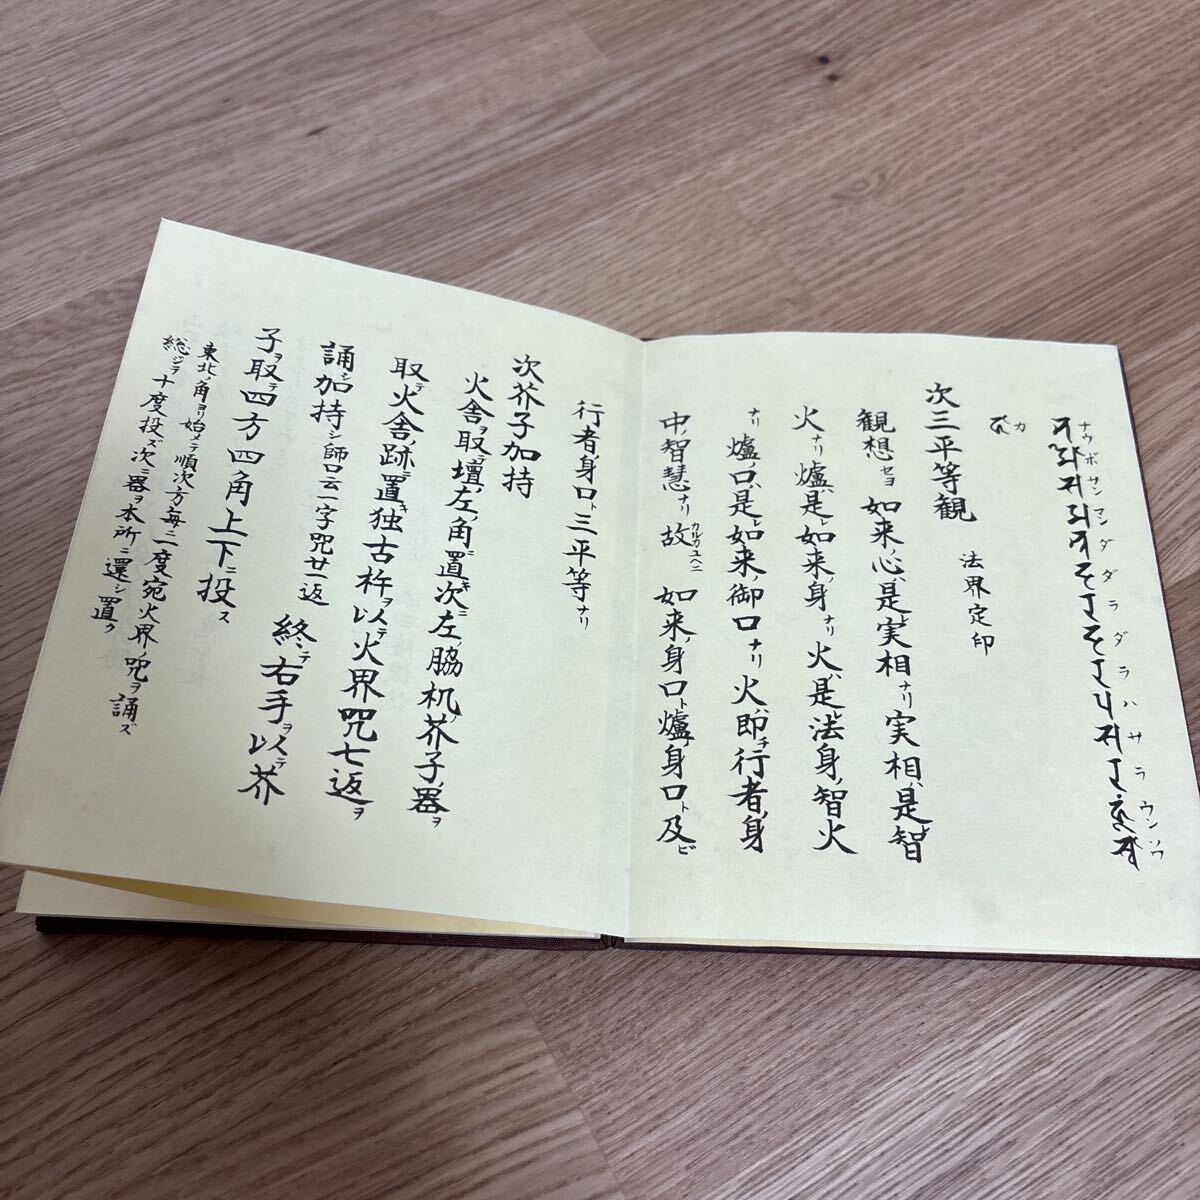 ナウボサンマンダダラダラハサラウンソワ
カ
次三平等観 法界定印
観想セヨ如来ノ心ハ是レ実相ナリ実相ハ是レ智
火ナリ爐ハ是レ如来ノ身ナリ火ハ是レ法身ノ智火
ナリ爐ノ口ハ是レ如来ノ御口ナリ火ハ即チ行者ノ身
中智慧ナリ故カルガユヘニ如来ノ身口ト爐ノ身口ト及ビ
行者ノ身口ト三平等ナリ
次芥子加持
火舎ヲ取テ壇ノ左ノ角ニ置キ次ニ左ノ脇机ノ芥子ノ器ヲ
取テ火舎ノ跡ニ置キ独古杵ヲ以テ火界咒七返ヲ
誦シ加持シ師口云一字咒廿一返 終テ右手ヲ以テ芥
子ヲ取テ四方四角上下ニ投ス
東北ノ角ヨリ始メテ順次方毎ニ一度宛火界ノ咒ヲ誦ズ
総ジテ十度投ズ次ニ器ヲ本所ニ還シ置ク